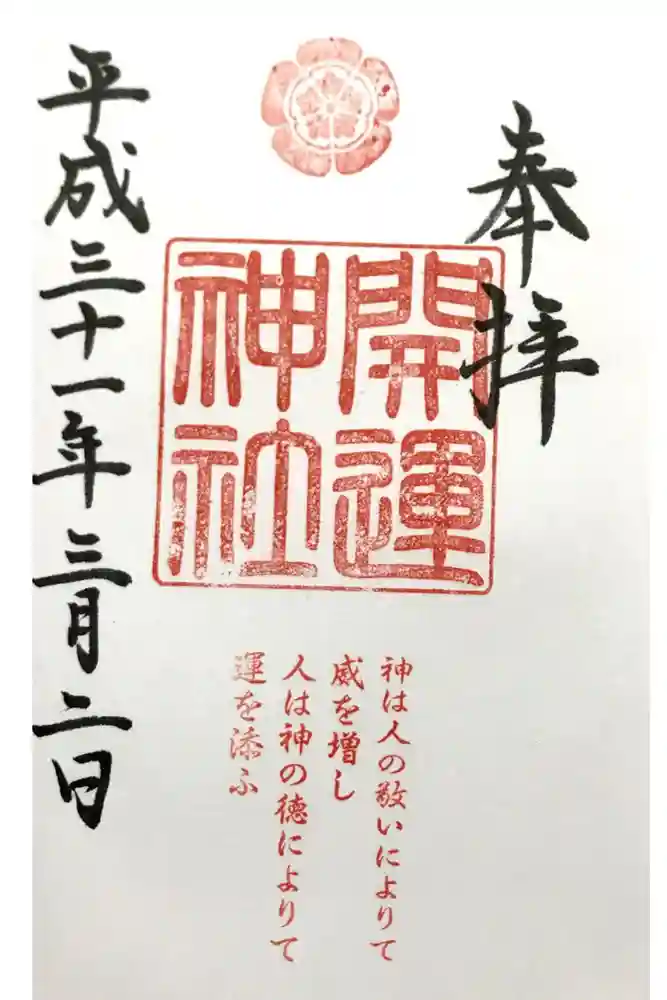 奉拝
開運
神社
神は人の敬いによりて
威を増し
人は神の徳によりて
運を添ふ
平成三十一年三月二日